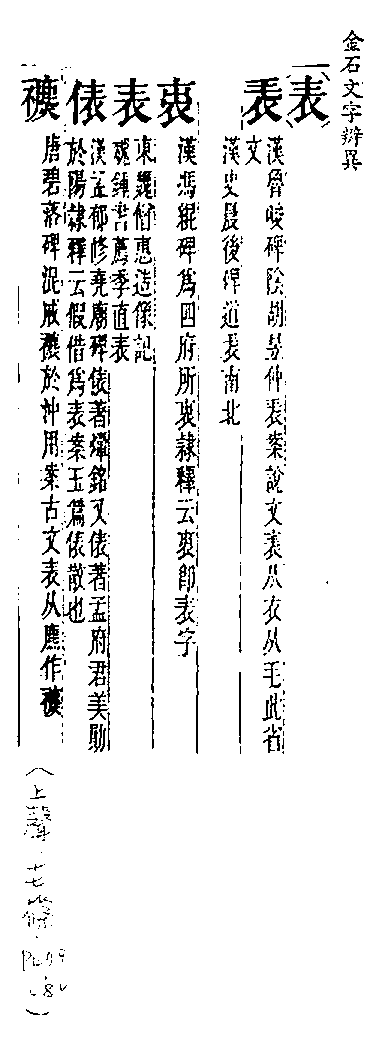 金石文字辨異
表
表
漢魯峻碑陰胡昱仲表案說文表从衣从毛此省
文
漢史晨後碑道表南北
表
漢馮緄碑為四府所表隸釋云表即表字
表
東魏僧惠造像記
魏鍾繇薦季直表
俵
漢孟郁修堯廟碑俵著爛銘又俵著孟府君美勛
於陽隸釋云假借為表案玉篇俵散也
𧞤
唐碧落碑混成𧞤於沖用案古文表从麃作𧞤
(上聲 十七篠